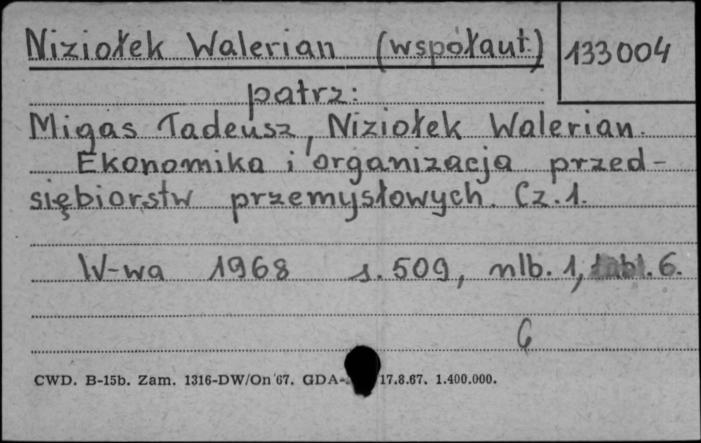 Niziołek Walerian (współaut.) 133004
patrz:
Migas Tadeusz, Niziołek Walerian.
Ekonomika i organizacja przed-
siębiorstw przemysłowych. Cz.1.
W-wa 1968 s. 509, nlb. 1, tabl. 6.
G
CWD. B-15b. Zam. 1316-DW/On 67. GDA- 17.8.67. 1.400.000.